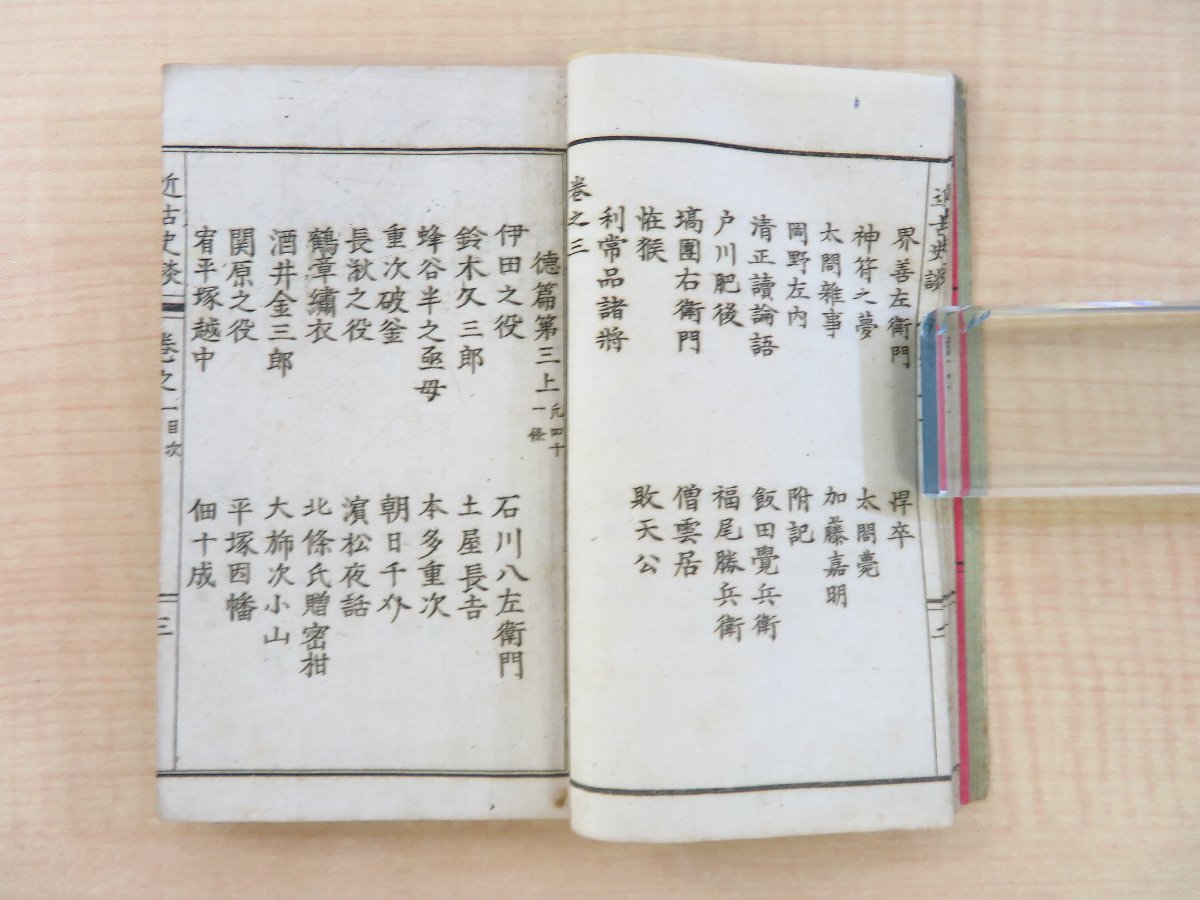 近古史談
界善左衛門
悍卒
神符之夢
太閤薨
太閤雜事
加藤嘉明
岡野左内
附記
清正讀論語
飯田覺兵衛
戸川肥後
福尾勝兵衛
塙團右衛門
僧雲居
恠猴
敗天公
利常品諸將
卷之三
德篇第三上
凡四十
一條
伊田之役
石川八左衛門
鈴木久三郎
土屋長吉
蜂谷半之亟母
本多重次
重次破釜
朝日千介
長湫之役
濵松夜話
鶴章繡衣
北條氏贈密柑
酒井金三郎
大斾次小山
関原之役
平塚因幡
宥平塚越中
佃十成
近古史談
卷之一目次
三